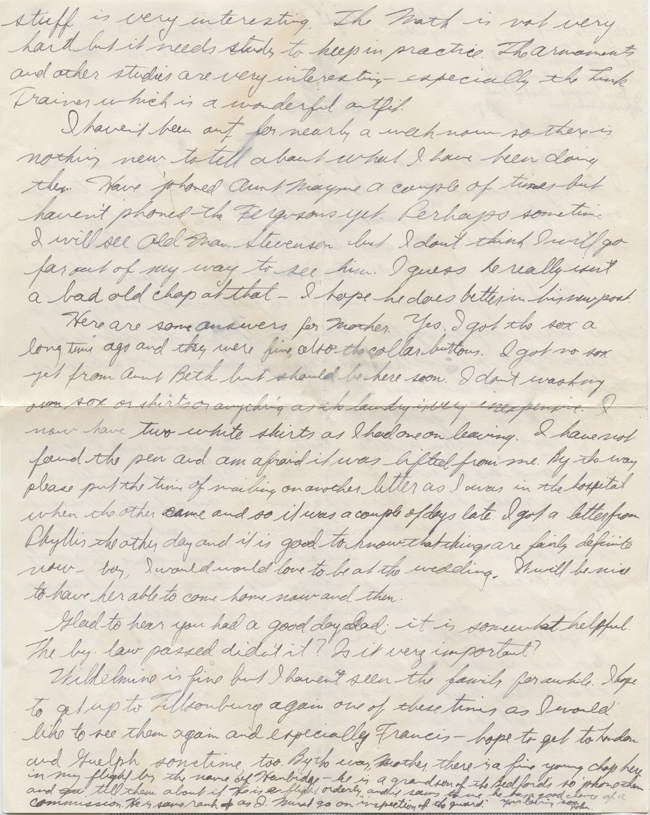 stuff is very interesting. The Math is not very
hard but it needs study to keep in practice. The armaments
and other studies are very interesting - especially the Link
Trainer which is a wonderful outfit.
I haven't been out for nearly a week now so there is
nothing new to tell about what I have been doing
then. Have 'phoned Aunt Mayme a couple of times but
haven't phoned the Fergusons yet. Perhaps sometime
I will see Old Man Stevenson but I don't think I will go
far out of my way to see him. I guess he really isn't
a bad old chap at that - I hope he does better in his new post.
Here are some answers for Mother. Yes, I got the sox a
long time ago and they were fine, also the collar buttons. I got no sox
yet from Aunt Beth but should be here soon. I don't wash my
own sox or shirts or anything as the laundry is very inexpensive. I
now have two white shirts as I had one on leaving. I have not
found the pen and am afraid it was lifted from me. By the way
please put the time of mailing on another letter as I was in the hospital
when the other came and so it was a couple of days late. I got a letter from
Phyllis the other day and it is good to know that things are fairly definite
now - boy, I would would love to be at the wedding. It will be nice
to have her able to come home now and then.
Glad to hear you had a good day Dad; it is somewhat helpful
The by-law passed didn't it? Is it very important?
Wilhelmine is fine but I haven't seen the family for awhile. I hope
to get up to Tillsonburg again one of these times as I would
like to see them again and especially Francis - hope to get to London
and Guelph sometime too. By the way, Mother there is a fine young chap here
in my flight by the name of Hanbidge - he is a grandson of the Bedfords so phone them
and tell them about it. He is flight orderly and he has a good chance of a
commission. He is same rank as I. Must go on "inspection of the guard". Your loving son
John